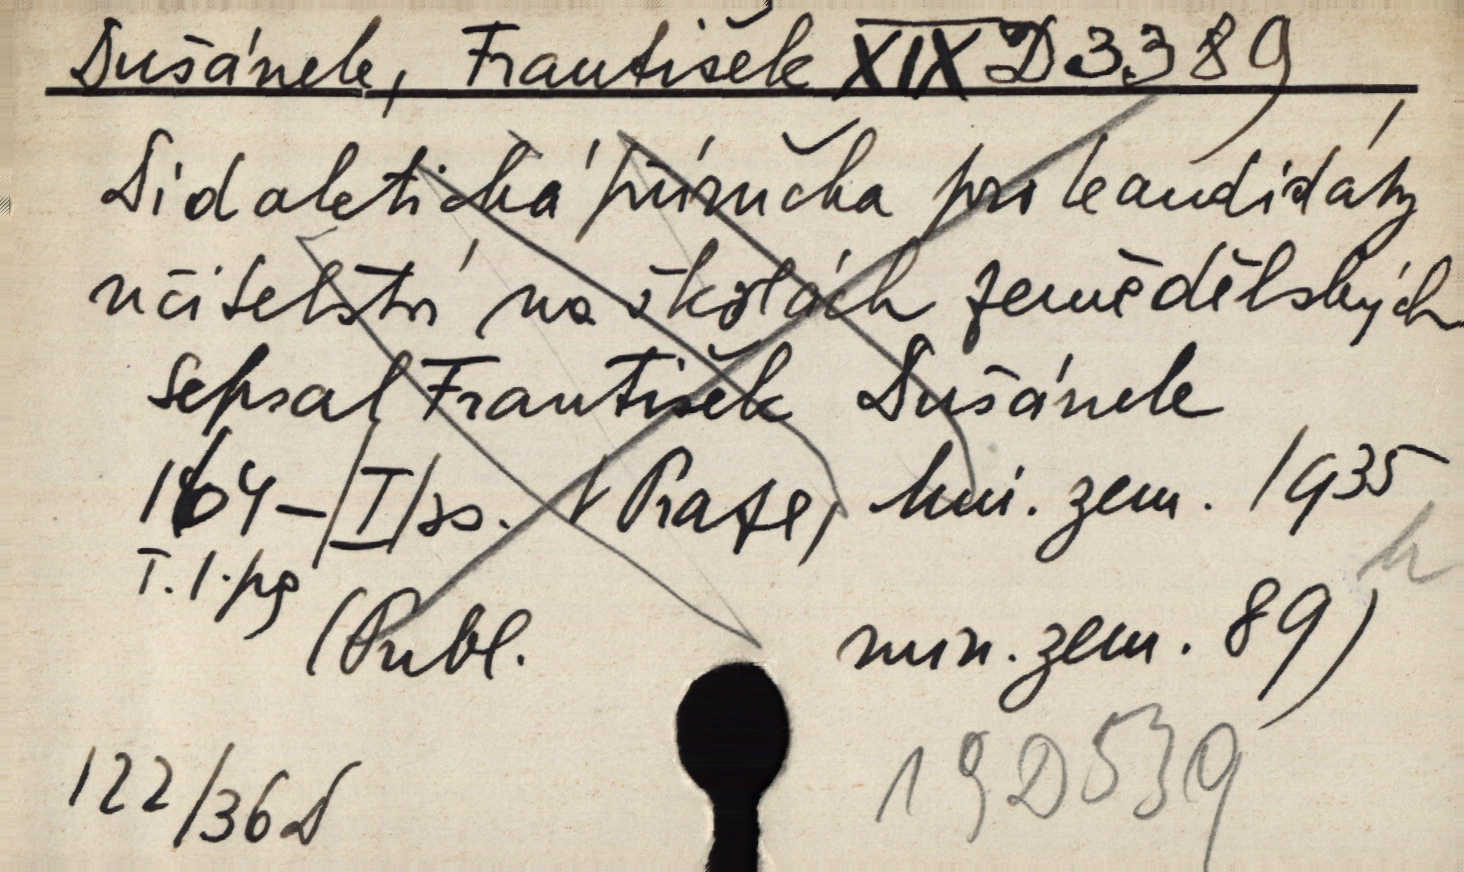 Dušánek, František XIX D 3.3 89
Didaktická příručka pro kandidáty
učitelství na školách zemědělských
sepsal František Dušánek
164-/I/ss. (Praze, min. zem. 1935
T. 1. pg
(Publ. min. zem. 89)
122/36 d
19 D 539